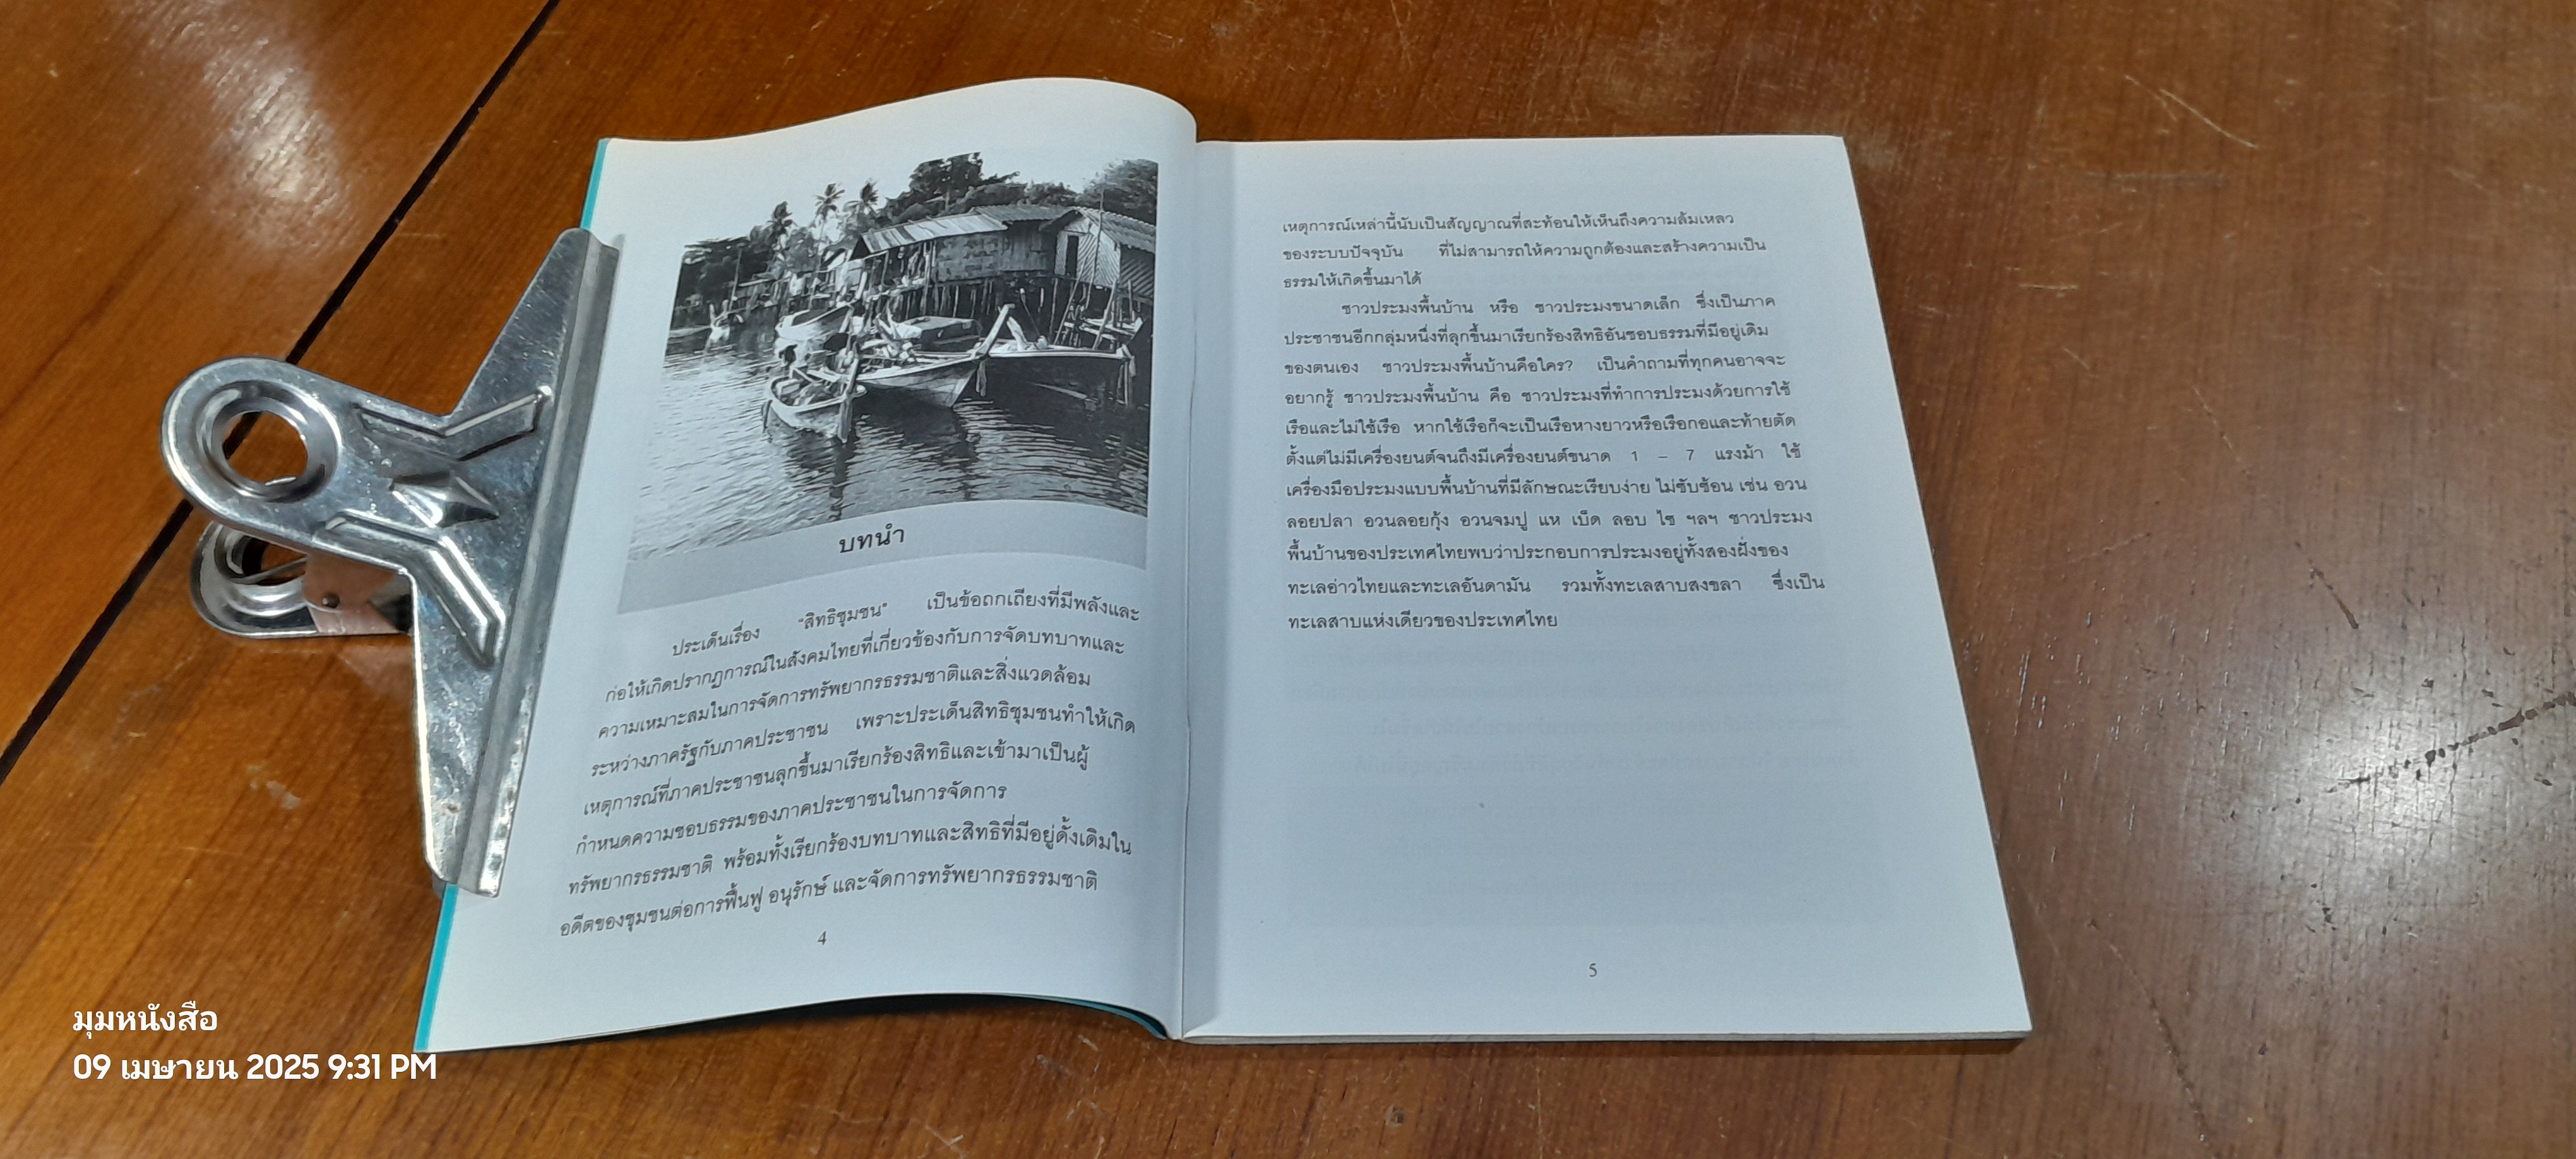 บทนำ
ประเด็นเรื่อง "สิทธิชุมชน" เป็นข้อถกเถียงที่มีพลังและ
ก่อให้เกิดปรากฏการณ์ในสังคมไทยที่เกี่ยวข้องกับการจัดบทบาทและ
ความเหมาะสมในการจัดการทรัพยากรธรรมชาติและสิ่งแวดล้อม
ระหว่างภาครัฐกับภาคประชาชน เพราะประเด็นสิทธิชุมชนทำให้เกิด
เหตุการณ์ที่ภาคประชาชนลุกขึ้นมาเรียกร้องสิทธิและเข้ามาเป็นผู้
กำหนดความชอบธรรมของภาคประชาชนในการจัดการ
ทรัพยากรธรรมชาติ พร้อมทั้งเรียกร้องบทบาทและสิทธิที่มีอยู่ดั้งเดิมใน
อดีตของชุมชนต่อการฟื้นฟู อนุรักษ์ และจัดการทรัพยากรธรรมชาติ
4
เหตุการณ์เหล่านี้นับเป็นสัญญาณที่สะท้อนให้เห็นถึงความล้มเหลว
ของระบบปัจจุบัน ที่ไม่สามารถให้ความถูกต้องและสร้างความเป็น
ธรรมให้เกิดขึ้นมาได้
ชาวประมงพื้นบ้าน หรือ ชาวประมงขนาดเล็ก ซึ่งเป็นภาค
ประชาชนอีกกลุ่มหนึ่งที่ลุกขึ้นมาเรียกร้องสิทธิอันชอบธรรมที่มีอยู่เดิม
ของตนเอง ชาวประมงพื้นบ้านคือใคร? เป็นคำถามที่ทุกคนอาจจะ
อยากรู้ ชาวประมงพื้นบ้าน คือ ชาวประมงที่ทำการประมงด้วยการใช้
เรือและไม่ใช้เรือ หากใช้เรือก็จะเป็นเรือหางยาวหรือเรือกอและท้ายตัด
ตั้งแต่ไม่มีเครื่องยนต์จนถึงมีเครื่องยนต์ขนาด 1 – 7 แรงม้า ใช้
เครื่องมือประมงแบบพื้นบ้านที่มีลักษณะเรียบง่าย ไม่ซับซ้อน เช่น อวน
ลอยปลา อวนลอยกุ้ง อวนจมปู แห เบ็ด ลอบ ไซ ฯลฯ ชาวประมง
พื้นบ้านของประเทศไทยพบว่าประกอบการประมงอยู่ทั้งสองฝั่งของ
ทะเลอ่าวไทยและทะเลอันดามัน รวมทั้งทะเลสาบสงขลา ซึ่งเป็น
ทะเลสาบแห่งเดียวของประเทศไทย
5
มุมหนังสือ
09 เมษายน 2025 9:31 PM